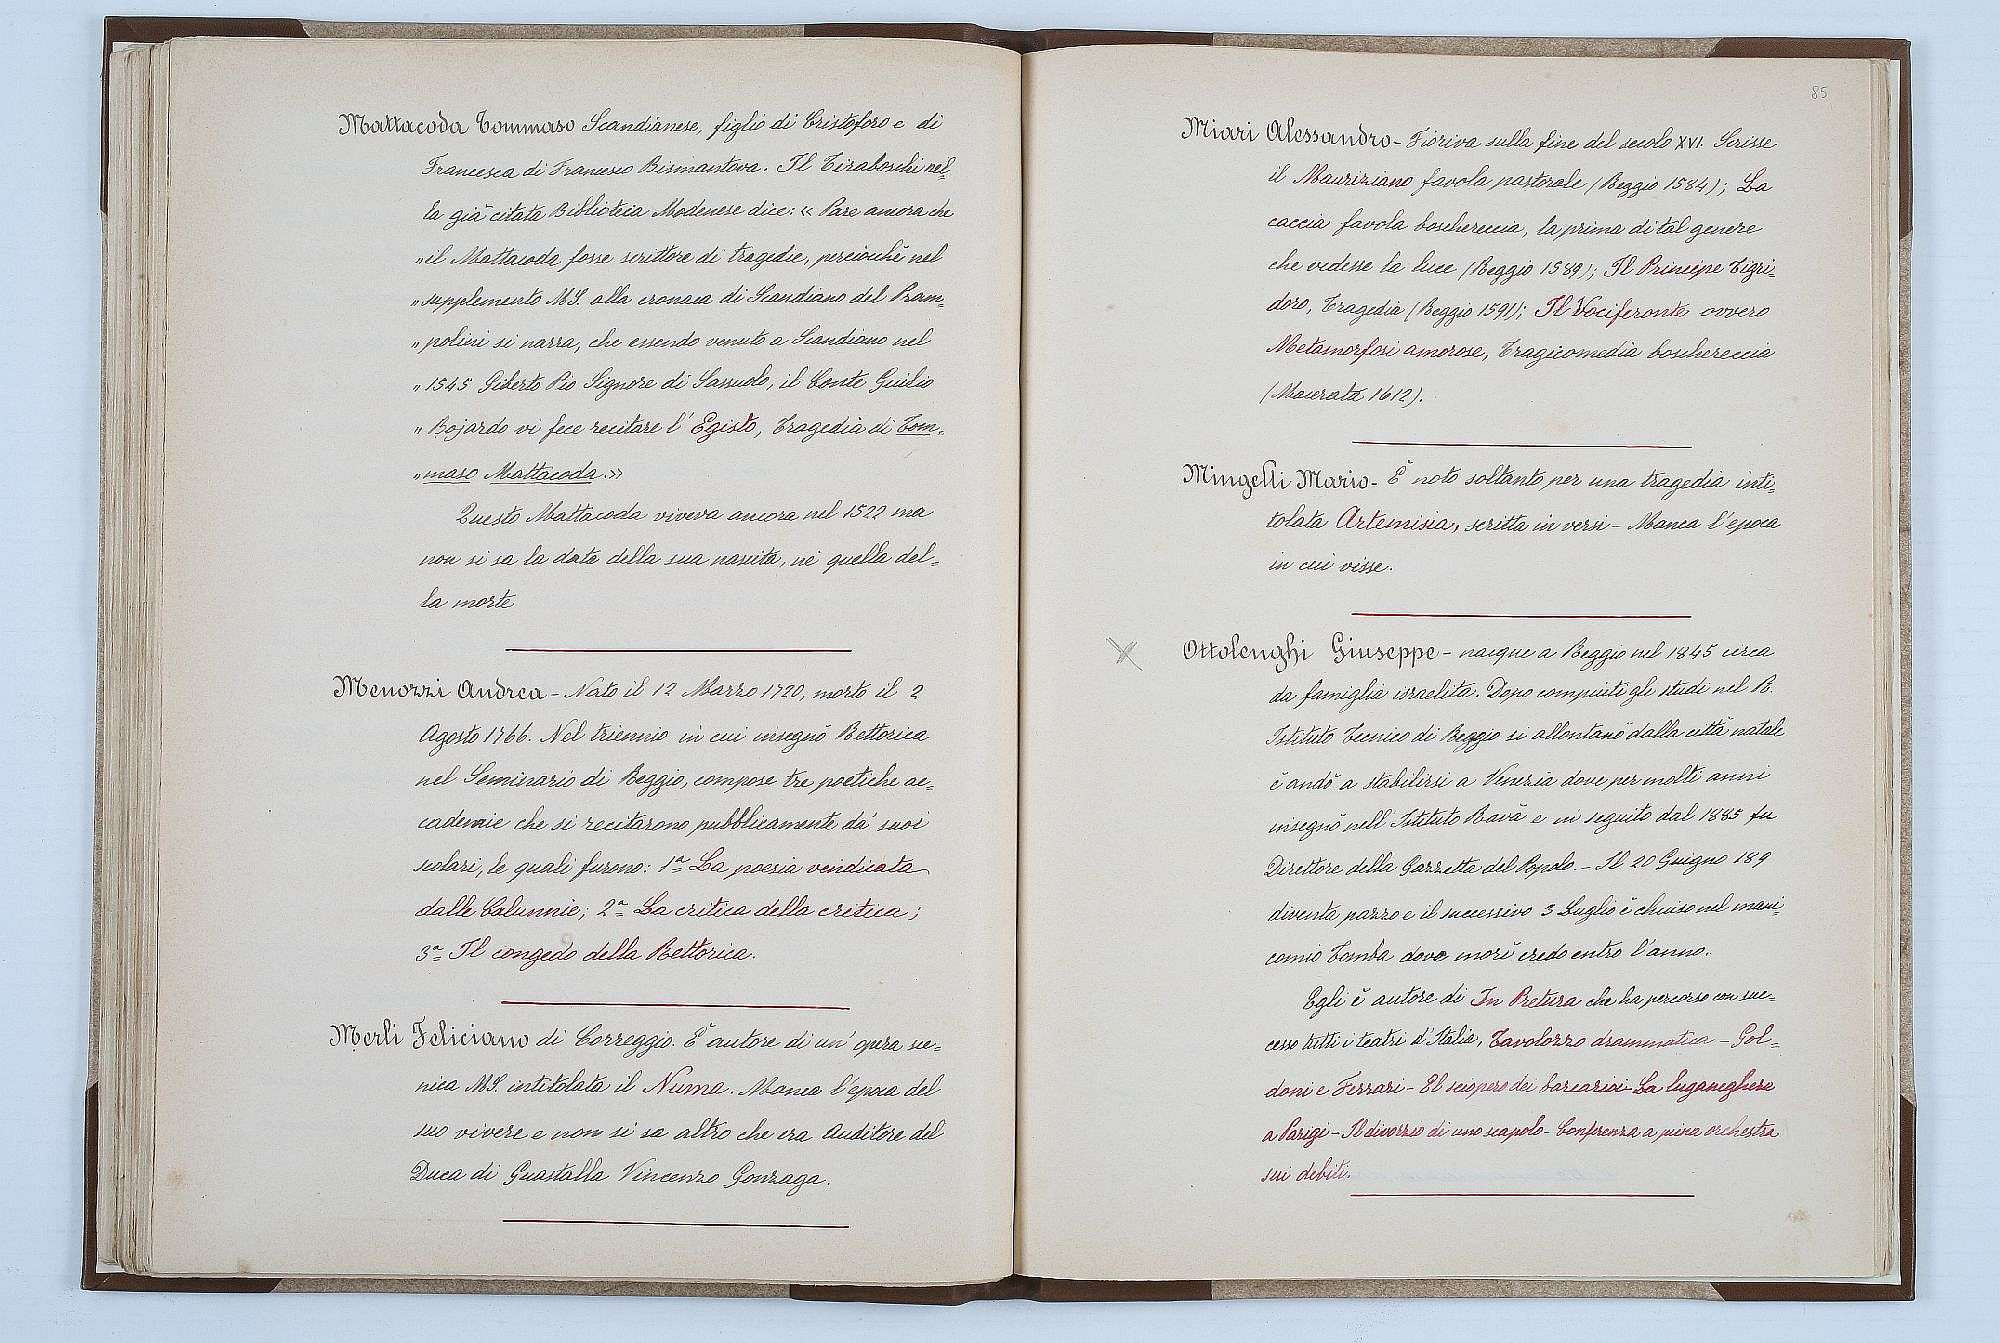 Mattacoda Tommaso Scandianese, figlio di Cristoforo e di
Francesca di Francesco Bismantova. Il Tiraboschi nel-
la già citata Biblioteca Modenese dice: « Pare ancora che
„ il Mattacoda fosse scrittore di tragedie, perciochè nel
„ supplemento MS. alla cronaca di Scandiano del Pram-
„ polini si narra, che essendo venuto a Scandiano nel
„ 1545 Giberto Pio Signore di Sassuolo, il Conte Giulio
„ Bojardo vi fece recitare l' Egisto, Tragedia di Tom-
„ maso Mattacoda.»
Questo Mattacoda viveva ancora nel 1522 ma
non si sa la data della sua nascita, nè quella del-
la morte
Menozzi Andrea - Nato il 12 Marzo 1720, morto il 2
Agosto 1766. Nel triennio in cui insegnò Rettorica
nel Seminario di Reggio, compose tre poetiche ac-
cademie che si recitarono pubblicamente da' suoi
scolari, le quali furono: 1ª La poesia vendicata
dalle Calunnie; 2ª La critica della critica;
3ª Il congedo della Rettorica.
Merli Feliciano di Correggio. È autore di un' opera sce-
nica MS. intitolata il Numa. Manca l'epoca del
suo vivere e non si sa altro che era Auditore del
Duca di Guastalla Vincenzo Gonzaga.
85
Miari Alessandro - Fioriva sulla fine del secolo XVI. Scrisse
il Mauriziano favola pastorale (Reggio 1584); La
caccia favola boschereccia, la prima di tal genere
che vedesse la luce (Reggio 1589); Il Principe Tigri-
doro, Tragedia (Reggio 1591); Il Vociferonte ovvero
Metamorfosi amorose, Tragicomedia boschereccia
(Macerata 1612).
Mingelli Mario - È noto soltanto per una tragedia inti-
tolata Artemisia, scritta in versi - Manca l'epoca
in cui visse.
Ottolenghi Giuseppe - nacque a Reggio nel 1845 circa
da famiglia israelita. Dopo compiuti gli studi nel R.
Istituto Tecnico di Reggio si allontanò dalla città natale
è andò a stabilirsi a Venezia dove per molti anni
insegnò nell Istituto Ravà e in seguito dal 1885 fu
Direttore della Gazzetta del Popolo. - Il 20 Giugno 189
diventa pazzo e il successivo 3 Luglio è chiuso nel mani-
comio Tomba dove morì credo entro l'anno.
Egli è autore di In Pretura che ha percorso con suc-
cesso tutti i teatri d'Italia, Tavolozza drammatica - Gol-
doni e Ferrari - El sciopero dei barcarioi - La luganeghera
a Parigi - Il divorzio di uno scapolo - Conferenza a piena orchestra
sui debiti.